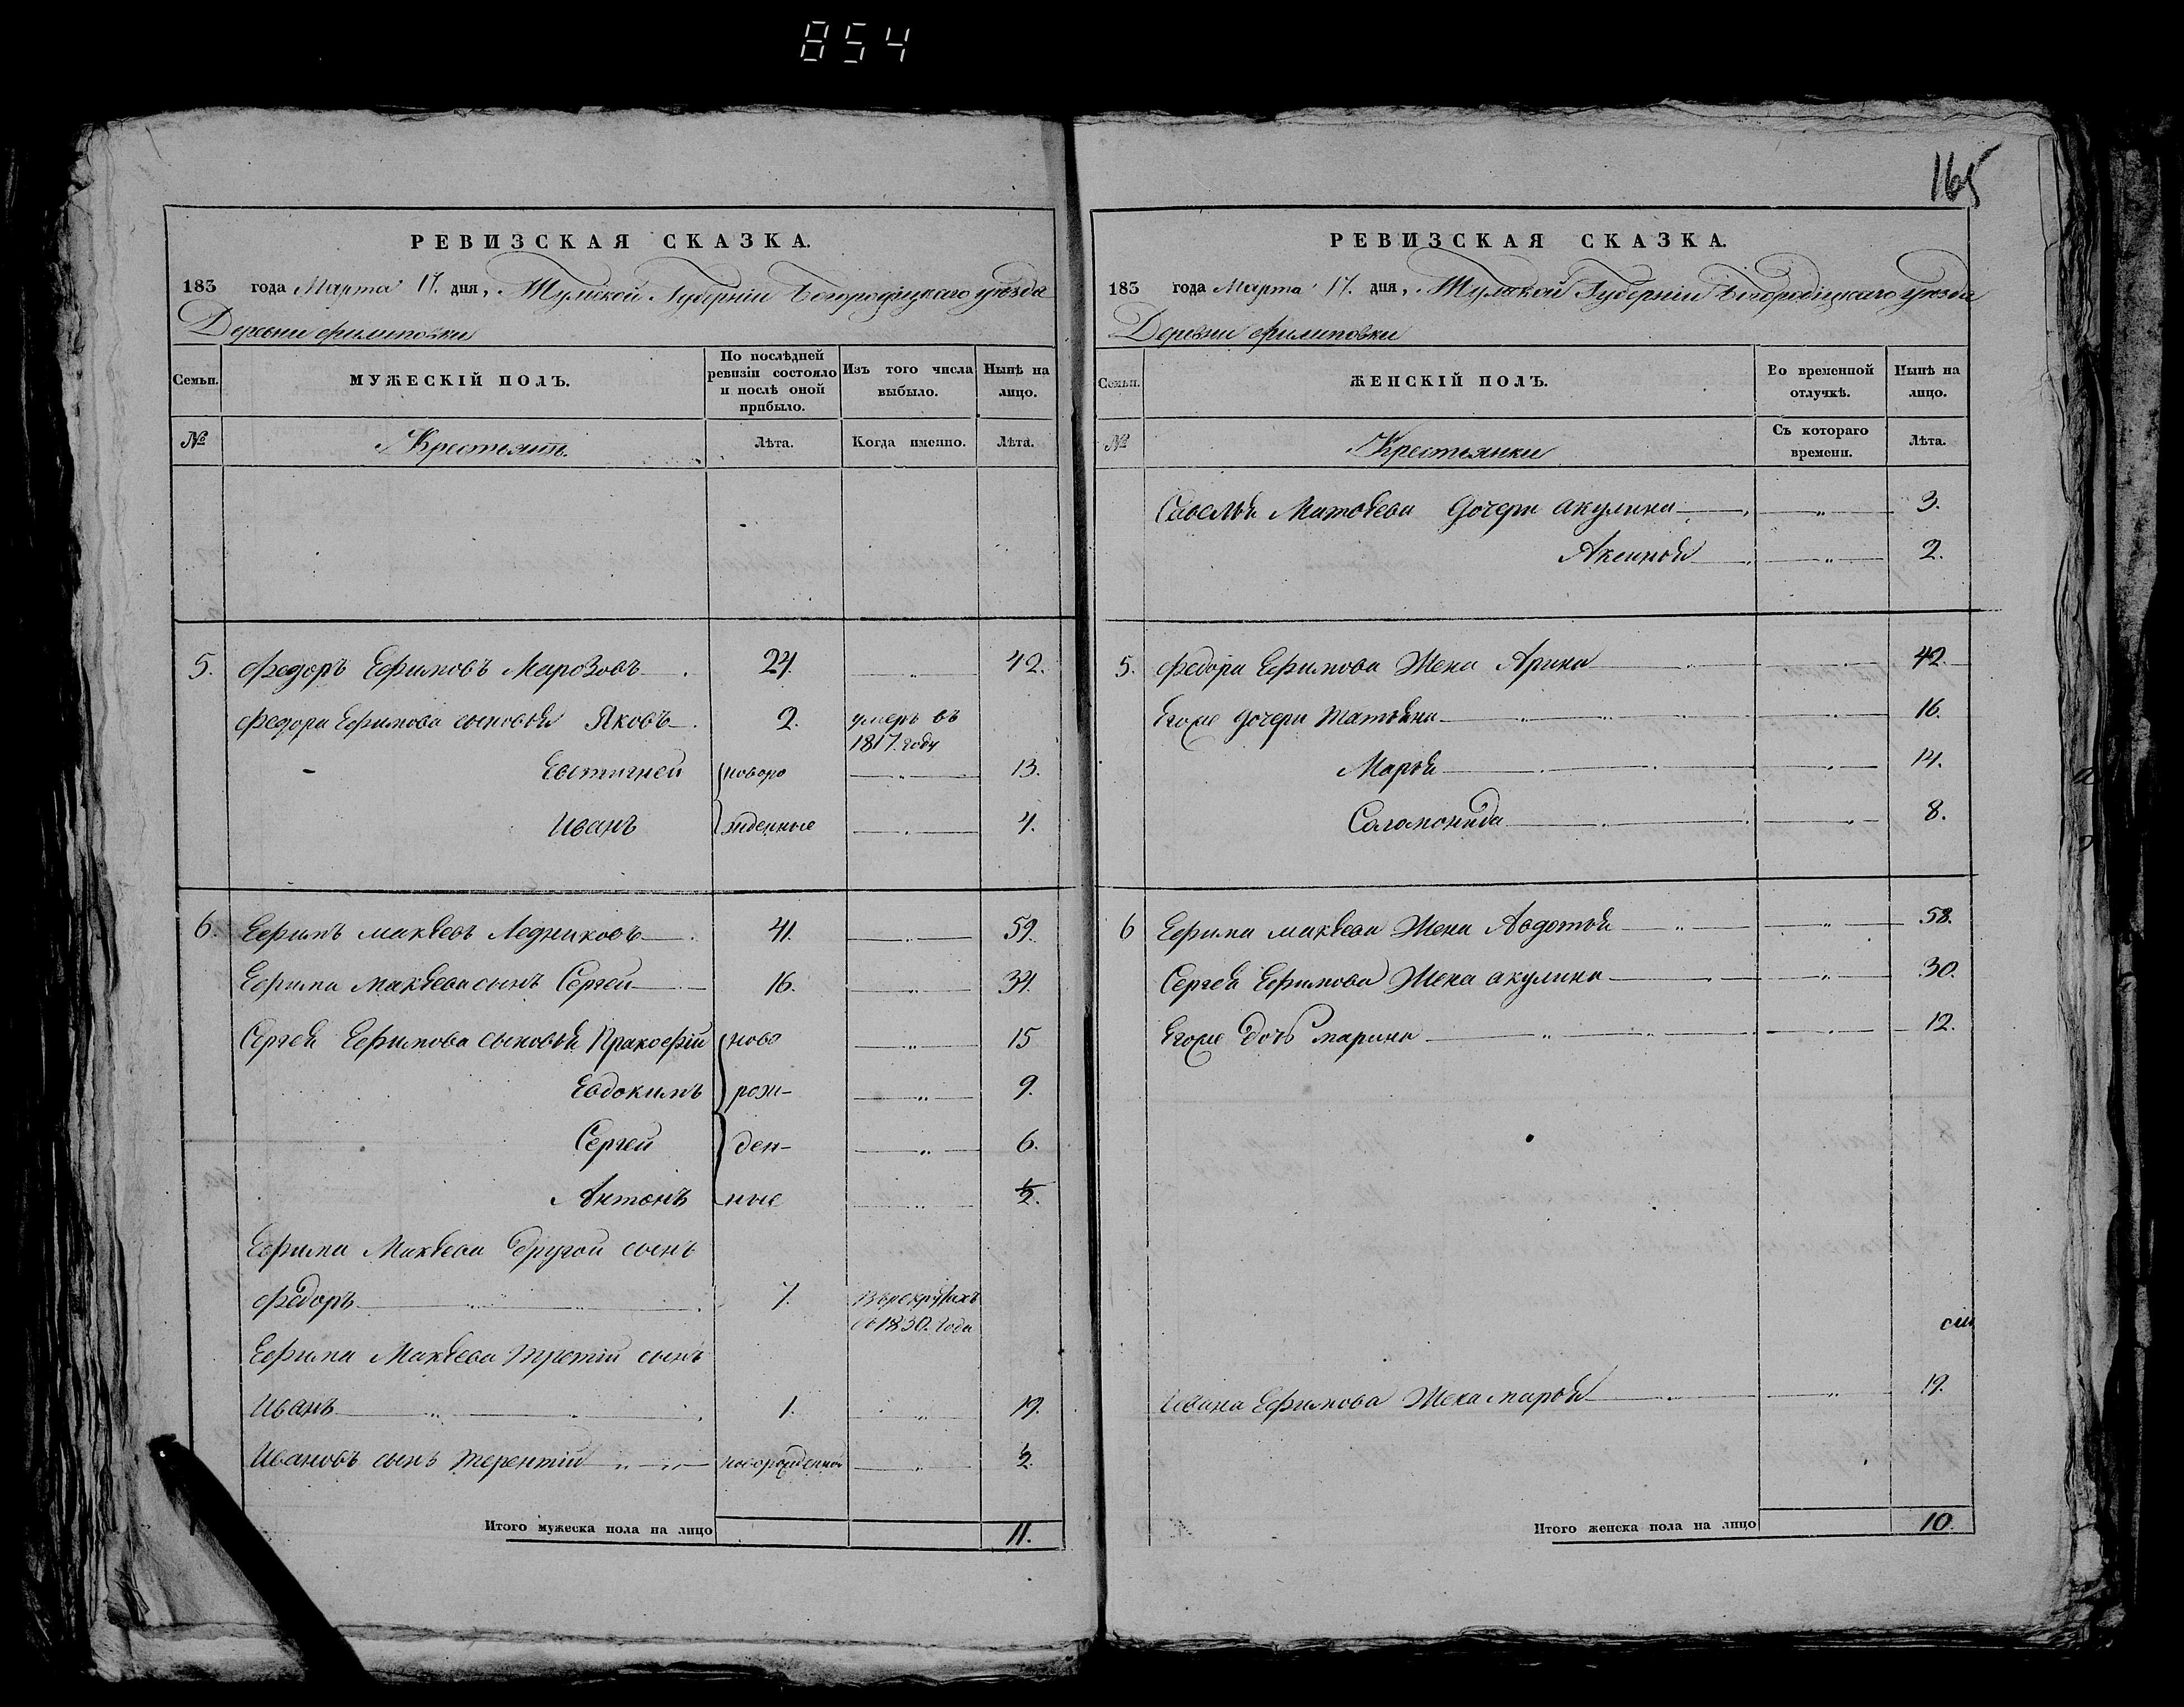 854
165
РЕВИЗСКАЯ СКАЗКА.
183 года Марта 17. дня, Тульской Губерніи Богородицкаго уѣзда
Деревни Филиповки
Семьи.
МУЖЕСКІЙ ПОЛЪ.
По послѣдней ревизіи состояло и послѣ оной прибыло.
Изъ того числа выбыло.
Нынѣ на лицо.
№
Крестьянъ.
Лѣта.
Когда именно.
Лѣта.
5. Федоръ Ефимовъ Марозовъ 24. 42.
Федора Ефимова сыновья Яковъ 2. умеръ въ
1817. году
Евтигней новоро 13.
Иванъ жденные 4.
6. Ефимъ Макѣевъ Ледниковъ 41. 59.
Ефима Макѣева сынъ Сергей 16. 34.
Сергея Ефимова сыновья Пракофій ново 15
Евдокимъ рож- 9.
Сергей ден- 6.
Антонъ ные ½.
Ефима Макѣева другой сынъ
Федоръ 7. Врекрутахъ
съ 1830. года
Ефима Макѣева третій сынъ
Иванъ 1. 19.
Ивановъ сынъ Терентій новорожденной ½.
Итого мужеска пола на лицо 11.
РЕВИЗСКАЯ СКАЗКА.
183 года Марта 17. дня, Тульской Губерніи Богородицкаго уѣзда
Деревни Филиповки
Семьи.
ЖЕНСКІЙ ПОЛЪ.
Во временной отлучкѣ.
Нынѣ на лицо.
№
Крестьянки
Съ котораго времени.
Лѣта.
Савелья Матвѣева дочери Акулина 3.
Аксинья 2.
5. Федора Ефимова Жена Арина 42.
Егоже дочери Татьяна 16.
Марья 14.
Саламонида 8.
6 Ефима Макѣева Жена Авдотья 58.
Сергея Ефимова Жена Акулина 30.
Егоже дочь Марина 12.
Ивана Ефимова Жена Марья 19.
Итого женска пола на лицо 10.